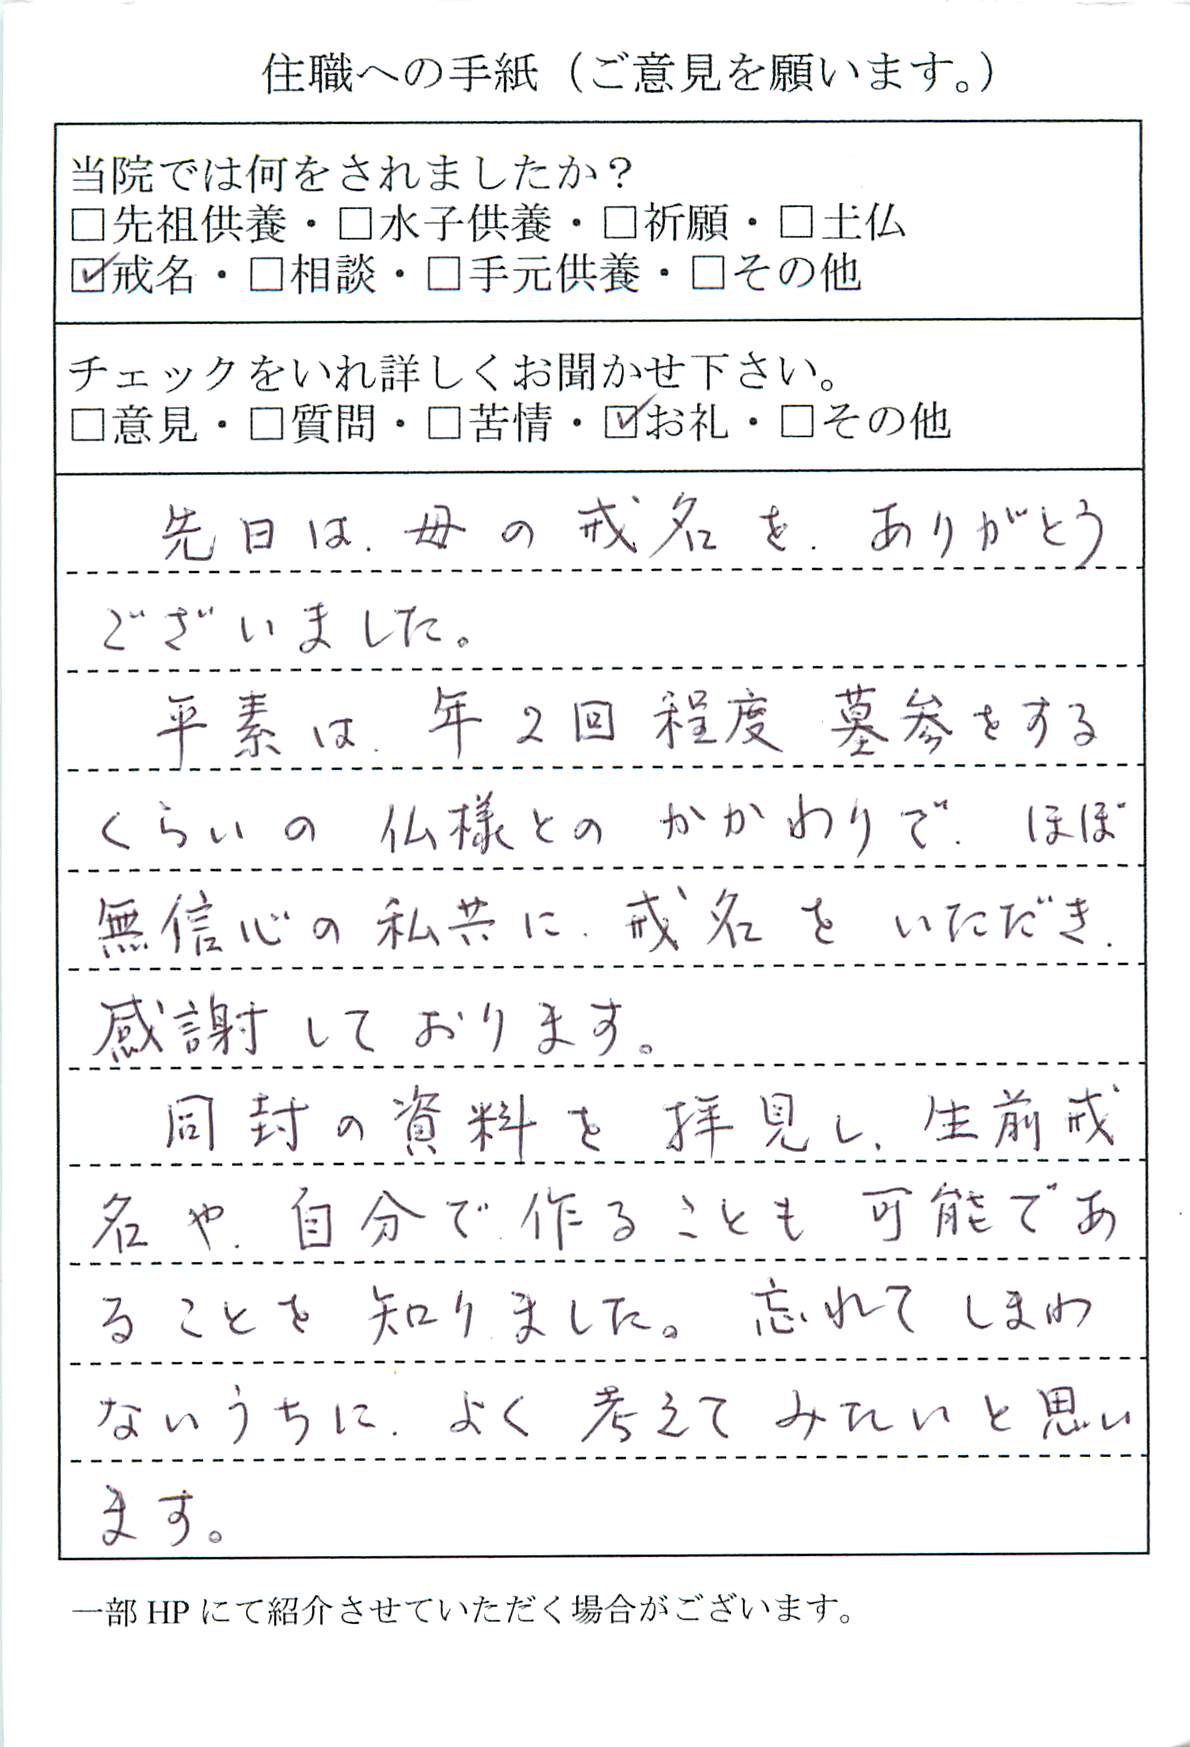 住職への手紙（ご意見を願います。）
当院では何をされましたか？
□先祖供養・□水子供養・□祈願・□土仏
☑戒名・□相談・□手元供養・□その他
チェックをいれ詳しくお聞かせ下さい。
□意見・□質問・□苦情・☑お礼・□その他
先日は、母の戒名を、ありがとう
ございました。
平素は、年2回程度墓参をする
くらいの仏様とのかかわりで、ほぼ
無信心の私共に、戒名をいただき、
感謝しております。
同封の資料を拝見し、生前戒
名や、自分で作ることも可能であ
ることを知りました。忘れてしまわ
ないうちに、よく考えてみたいと思い
ます。
一部HPにて紹介させていただく場合がございます。